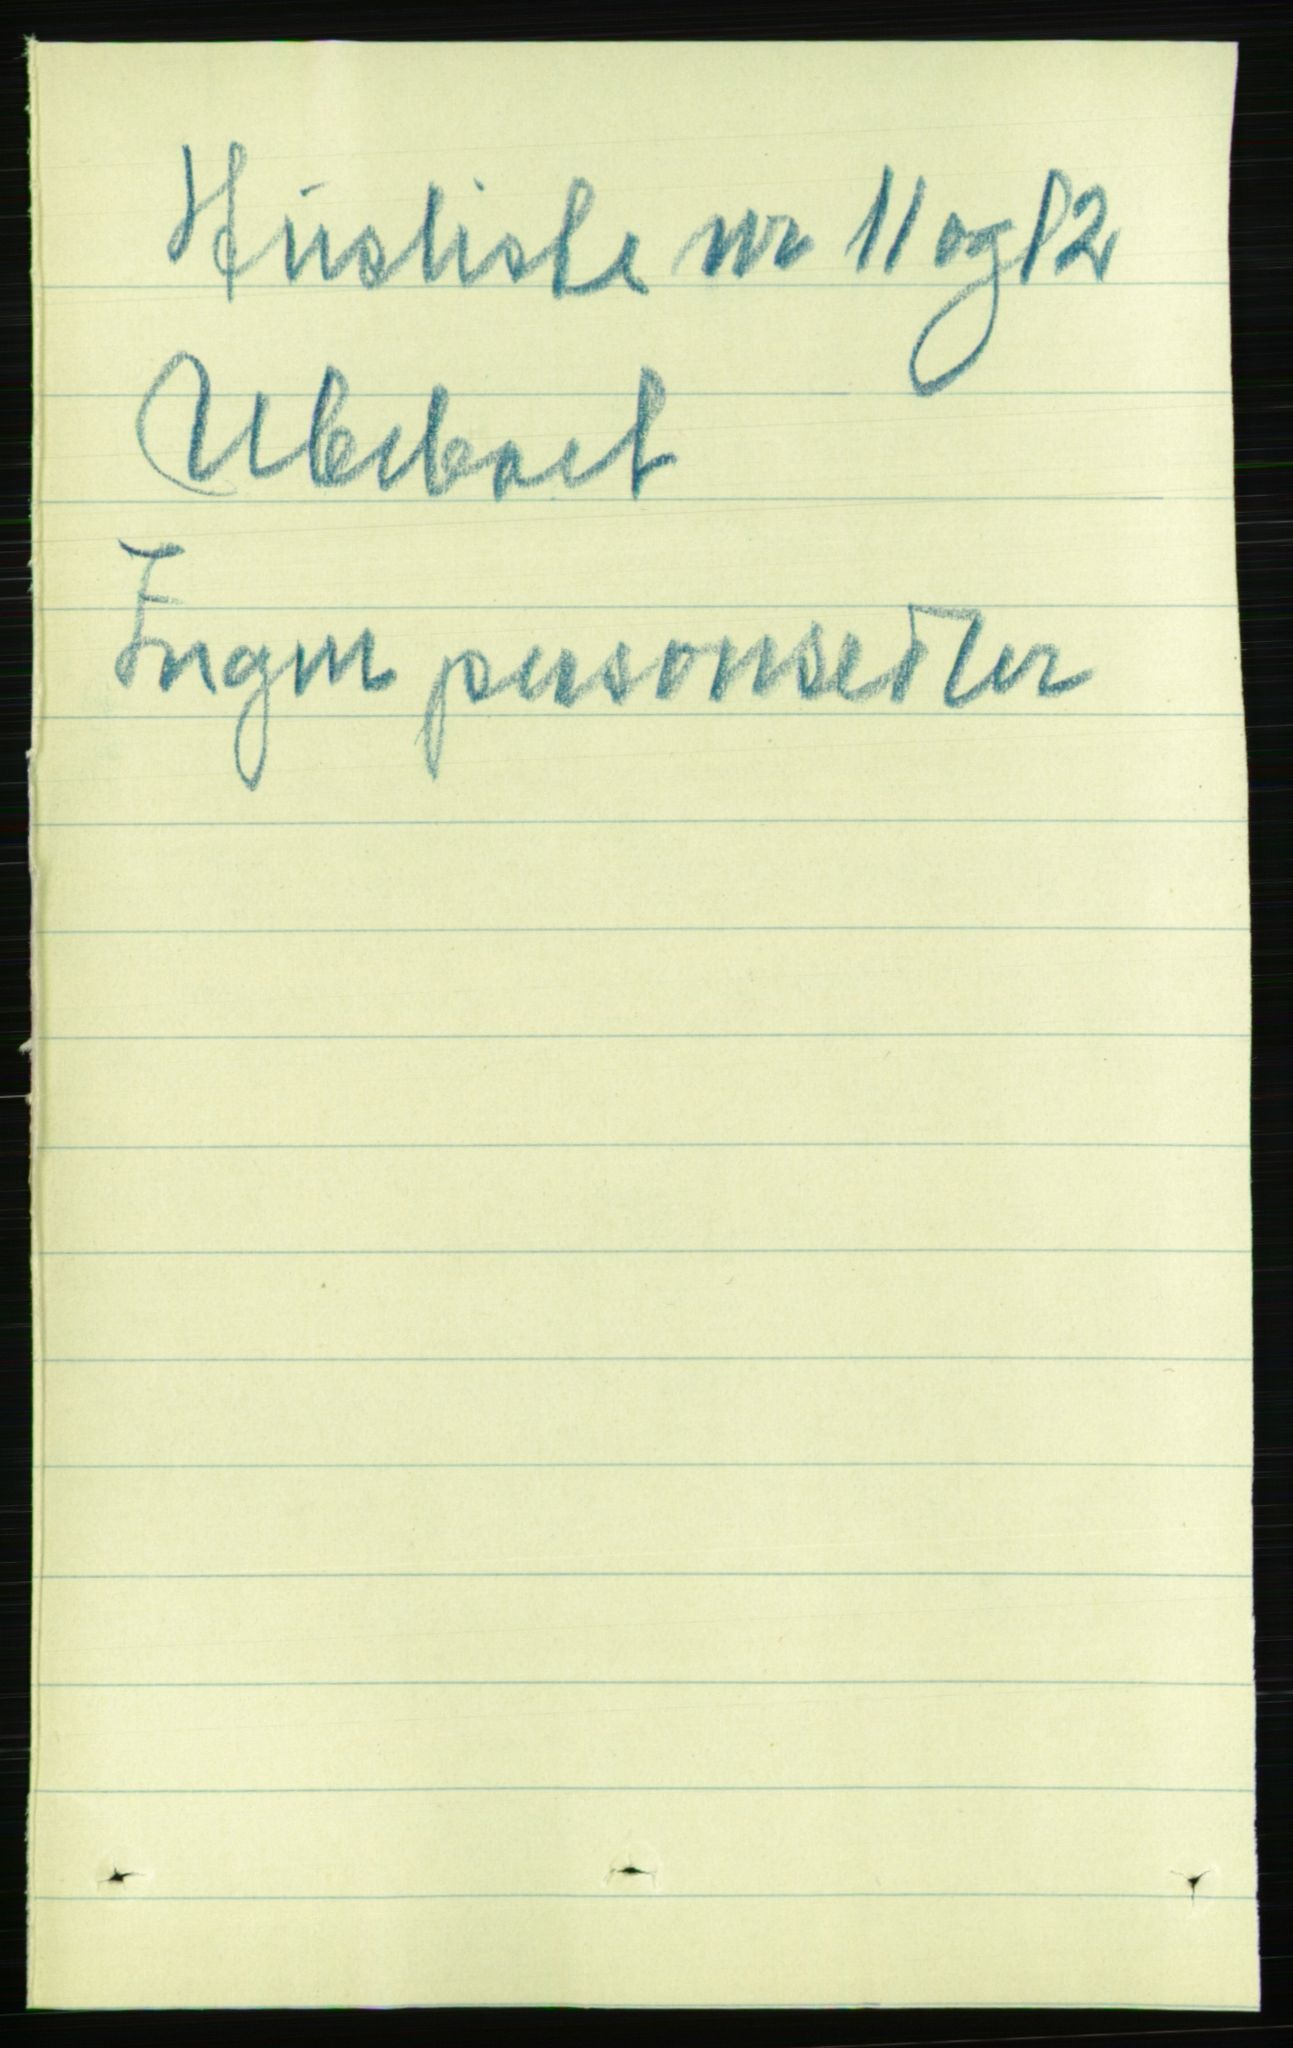 Husliste nr 11 og 12
Ubeboet
Ingen personsedler